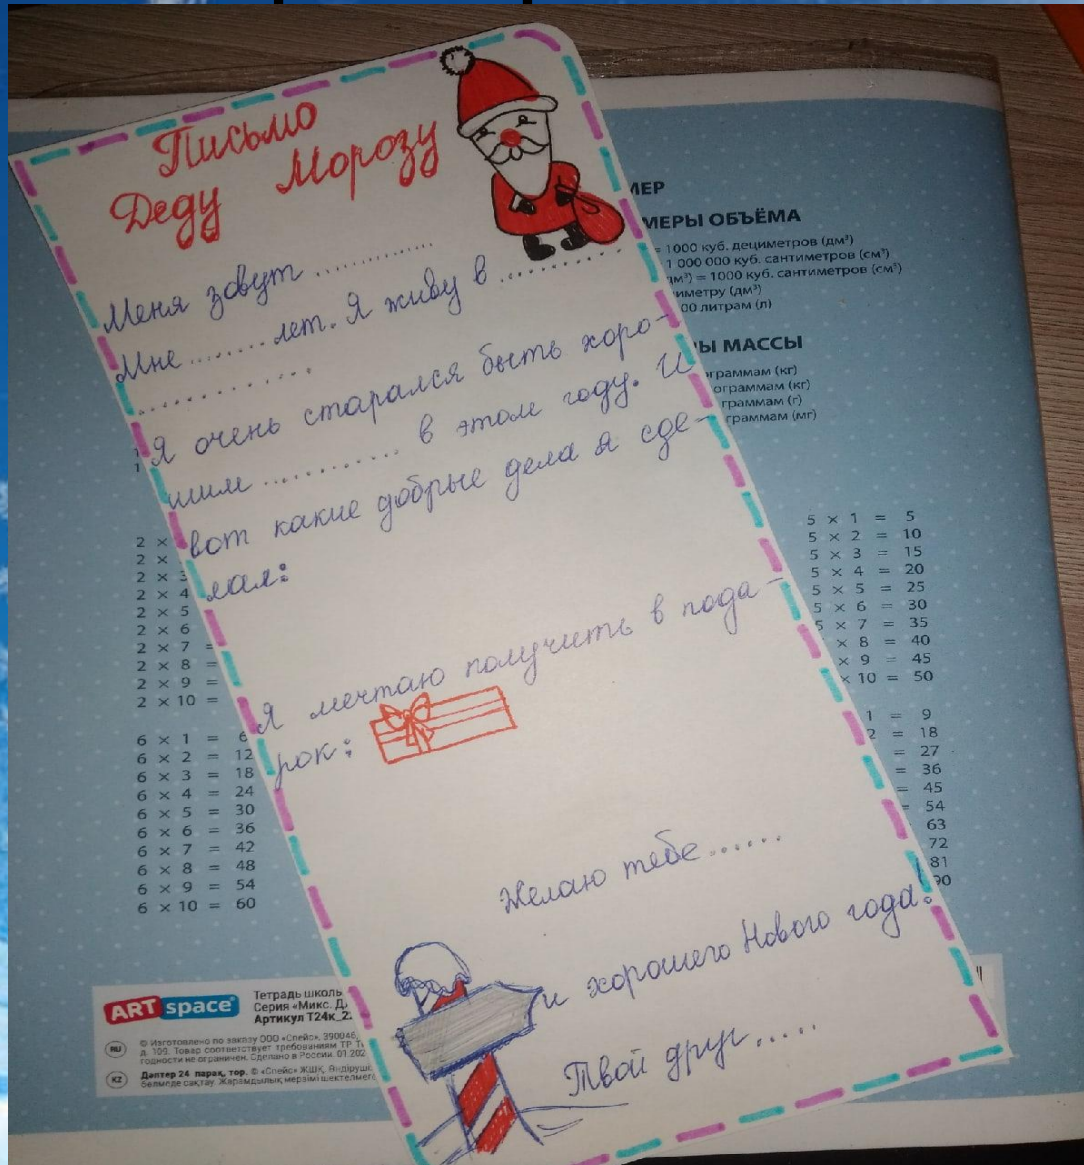 Письмо
Деду Морозу
Меня зовут ............
Мне ........ лет. Я живу в ............
............
Я очень старался быть хоро-
шим ........... в этом году. И
вот какие добрые дела я сде-
лал:
Я мечтаю получить в пода-
рок:
Желаю тебе ......
и хорошего Нового года!
Твой друг.....
МЕР
МЕРЫ ОБЪЁМА
= 1000 куб. дециметров (дм³)
1 000 000 куб. сантиметров (см³)
дм³) = 1000 куб. сантиметров (см³)
иметру (дм³)
00 литрам (л)
Ы МАССЫ
ограммам (кг)
ограммам (кг)
граммам (г)
граммам (мг)
2 ×
2 ×
2 × 3
2 × 4
2 × 5
2 × 6
2 × 7 =
2 × 8 =
2 × 9 =
2 × 10 =
6 × 1 = 6
6 × 2 = 12
6 × 3 = 18
6 × 4 = 24
6 × 5 = 30
6 × 6 = 36
6 × 7 = 42
6 × 8 = 48
6 × 9 = 54
6 × 10 = 60
5 × 1 = 5
5 × 2 = 10
5 × 3 = 15
5 × 4 = 20
5 × 5 = 25
5 × 6 = 30
5 × 7 = 35
× 8 = 40
× 9 = 45
× 10 = 50
1 = 9
2 = 18
= 27
= 36
= 45
= 54
63
72
81
90
ART space
Тетрадь школь
Серия «Микс. Д
Артикул Т24к_2
RU
© Изготовлено по заказу ООО «Спейс», 390046,
д. 109. Товар соответствует требованиям ТР Т
годности не ограничен. Сделано в России. 01.202
KZ
Дәптер 24 парақ, тор. © «Спейс» ЖШҚ. Өндіруш
бөлмеде сақтау. Жарамдылық мерзімі шектелмеге